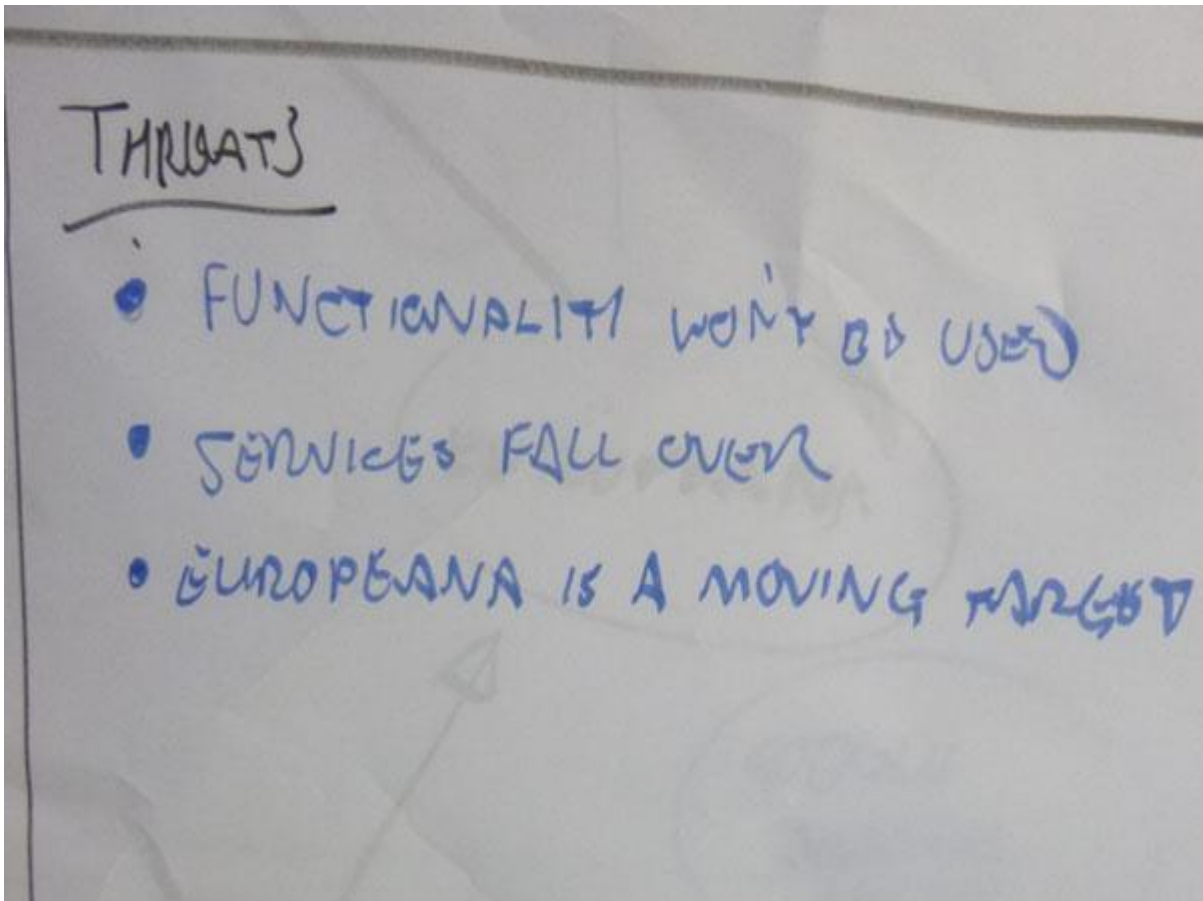 THREATS
• FUNCTIONALITY WON'T BE USED
• SERVICES FALL OVER
• EUROPEANA IS A MOVING TARGET